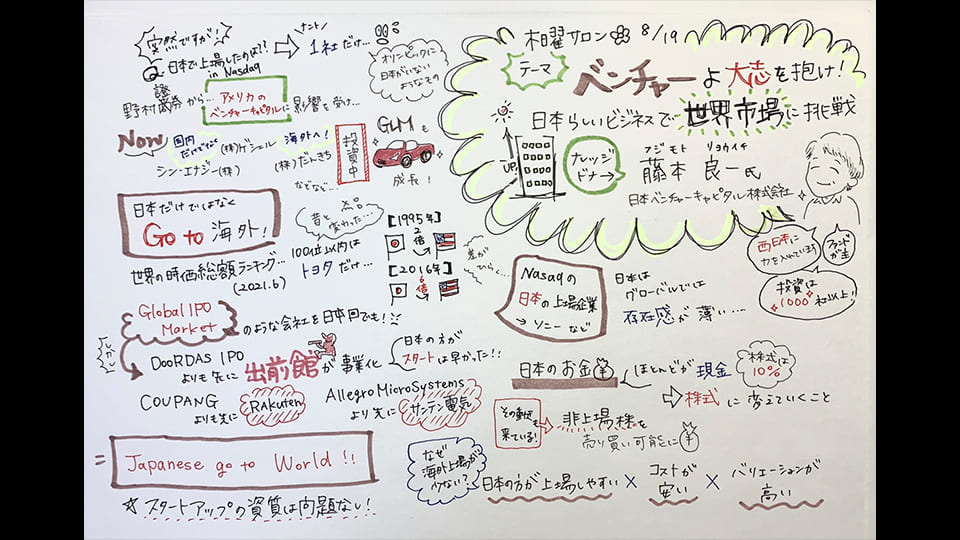 木曜サロン 8/19
テーマ
ベンチャーよ大志を抱け!
日本らしいビジネスで世界市場に挑戦
UP!
ナレッジ
ドナー
フジモト リョウイチ
藤本 良一氏
日本ベンチャーキャピタル株式会社
西日本に
力を入れています
ファンド
が主
投資は
1000社以上!
突然ですが!
Q.日本で上場したのは??
in Nasdaq
ナント!
1社だけ…
オリンピックに
日本がいない
ようなもの
野村證券から…
アメリカの
ベンチャーキャピタルに影響を受け…
Now
国内
だけでなく
(株)ゲシェル
海外へ!
シン・エナジー(株)
(株)だんきち
などなど…
投資中
GLMも
成長!
日本だけではなく
Go to 海外!
昔と
変わった…
世界の時価総額ランキング…
(2021.6)
100位以内は
トヨタだけ…
【1995年】
2倍
【2016年】
6倍
差が
ひらく…
Nasaqの
日本の上場企業
→ソニーなど
日本は
グローバルでは
存在感が薄い…
Global IPO
Marketのような会社を日本回でも!
しかし
DooRDAS IPO
よりも先に 出前館が事業化
日本の方が
スタートは早かった!!
COUPANG
よりも先に RAkuten
Allegro MicroSystems
より先に サンケン電気
日本のお金¥
ほとんどが現金
株式は
10%
⇨株式に変えていくこと
その動きも
来ている!
非上場株を
売り買い可能に¥
= Japanese go to World!!
☆スタートアップの資質は問題なし!
なぜ
海外上場が
少ない?
日本の方が上場しやすい × コストが安い × バリエーションが高い